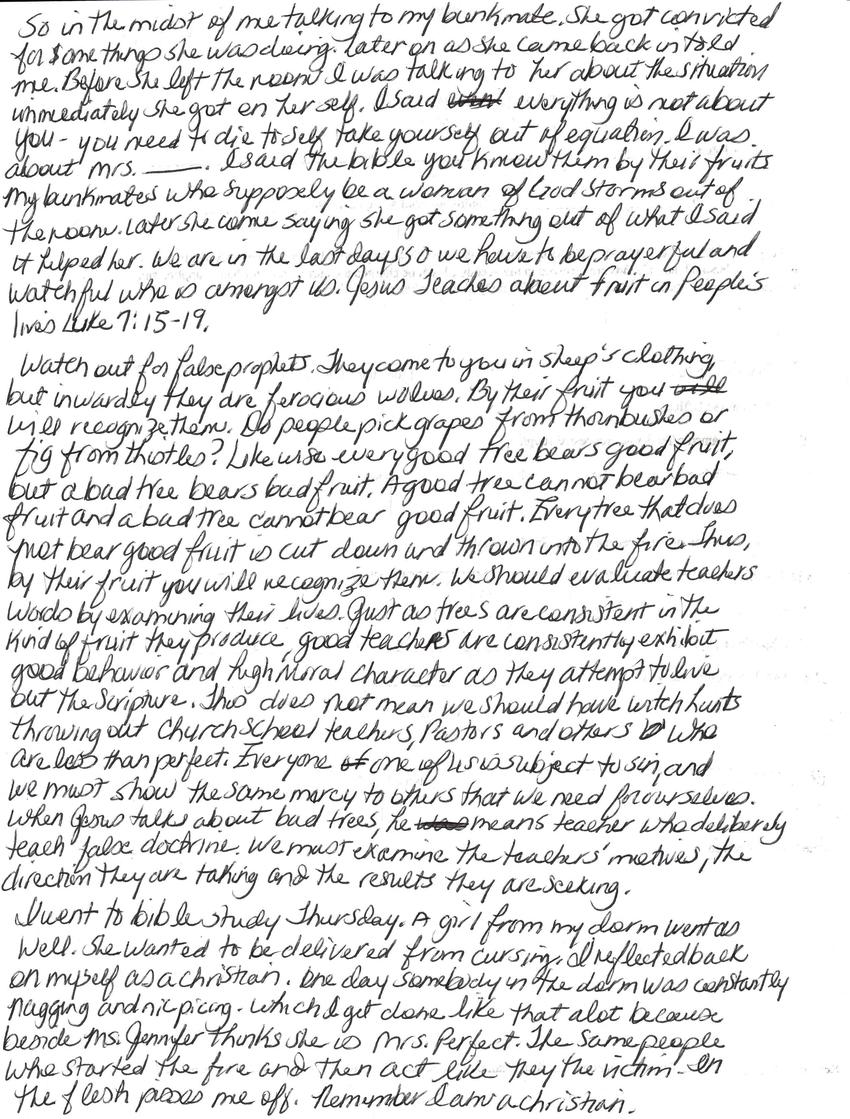 So in the midst of me talking to my bunkmate. She got convicted
for some things she was doing. Later on as she came back in told
me. Before she left the room I was talking to her about the situation
immediately she got on her self. I said everything is not about
you - you need to die to self take yourself out of equation. I was
about mrs. ____. I said the bible you know them by their fruits
My bunkmates who supposely be a woman of God storms out of
the room. Later she come saying she got something out of what I said
it helped her. We are in the last days so we have to be prayerful and
watchful who is amongst us. Jesus Teaches about fruit in People's
lives Luke 7:15-19.
Watch out for false prophets. They come to you in sheep's clothing,
but inwardly they are ferocious wolves. By their fruit you will
will recognize them. Do people pick grapes from thornbushes or
fig from thistles? Likewise every good tree bears good fruit,
but a bad tree bears bad fruit. A good tree cannot bear bad
fruit and a bad tree cannot bear good fruit. Every tree that does
not bear good fruit is cut down and thrown into the fire. Thus,
by their fruit you will recognize them. We should evaluate teachers
words by examining their lives. Just as trees are consistent in the
kind of fruit they produce, good teachers are consistently exhibit
good behavior and high Moral character as they attempt to live
out the Scripture. This does not mean we should have witch hunts
throwing out Church School teachers, Pastors and others who
are less than perfect. Everyone of one of us is subject to sin, and
we must show the same mercy to others that we need for ourselves.
When Jesus talks about bad trees, he was means teacher who deliberdy
teach false doctrine. We must examine the teachers' motives, the
direction they are taking and the results they are seeking.
I went to bible study Thursday. A girl from my dorm went as
well. She wanted to be delivered from cursing. I reflected back
on myself as a christian. One day somebody in the dorm was constantly
nagging and nic picing. Which I get done like that alot because
beside Ms. Jennifer thinks she is Mrs. Perfect. The same people
who started the fire and then act like they the victim. In
the flesh pisses me off. Remember I am a christian.